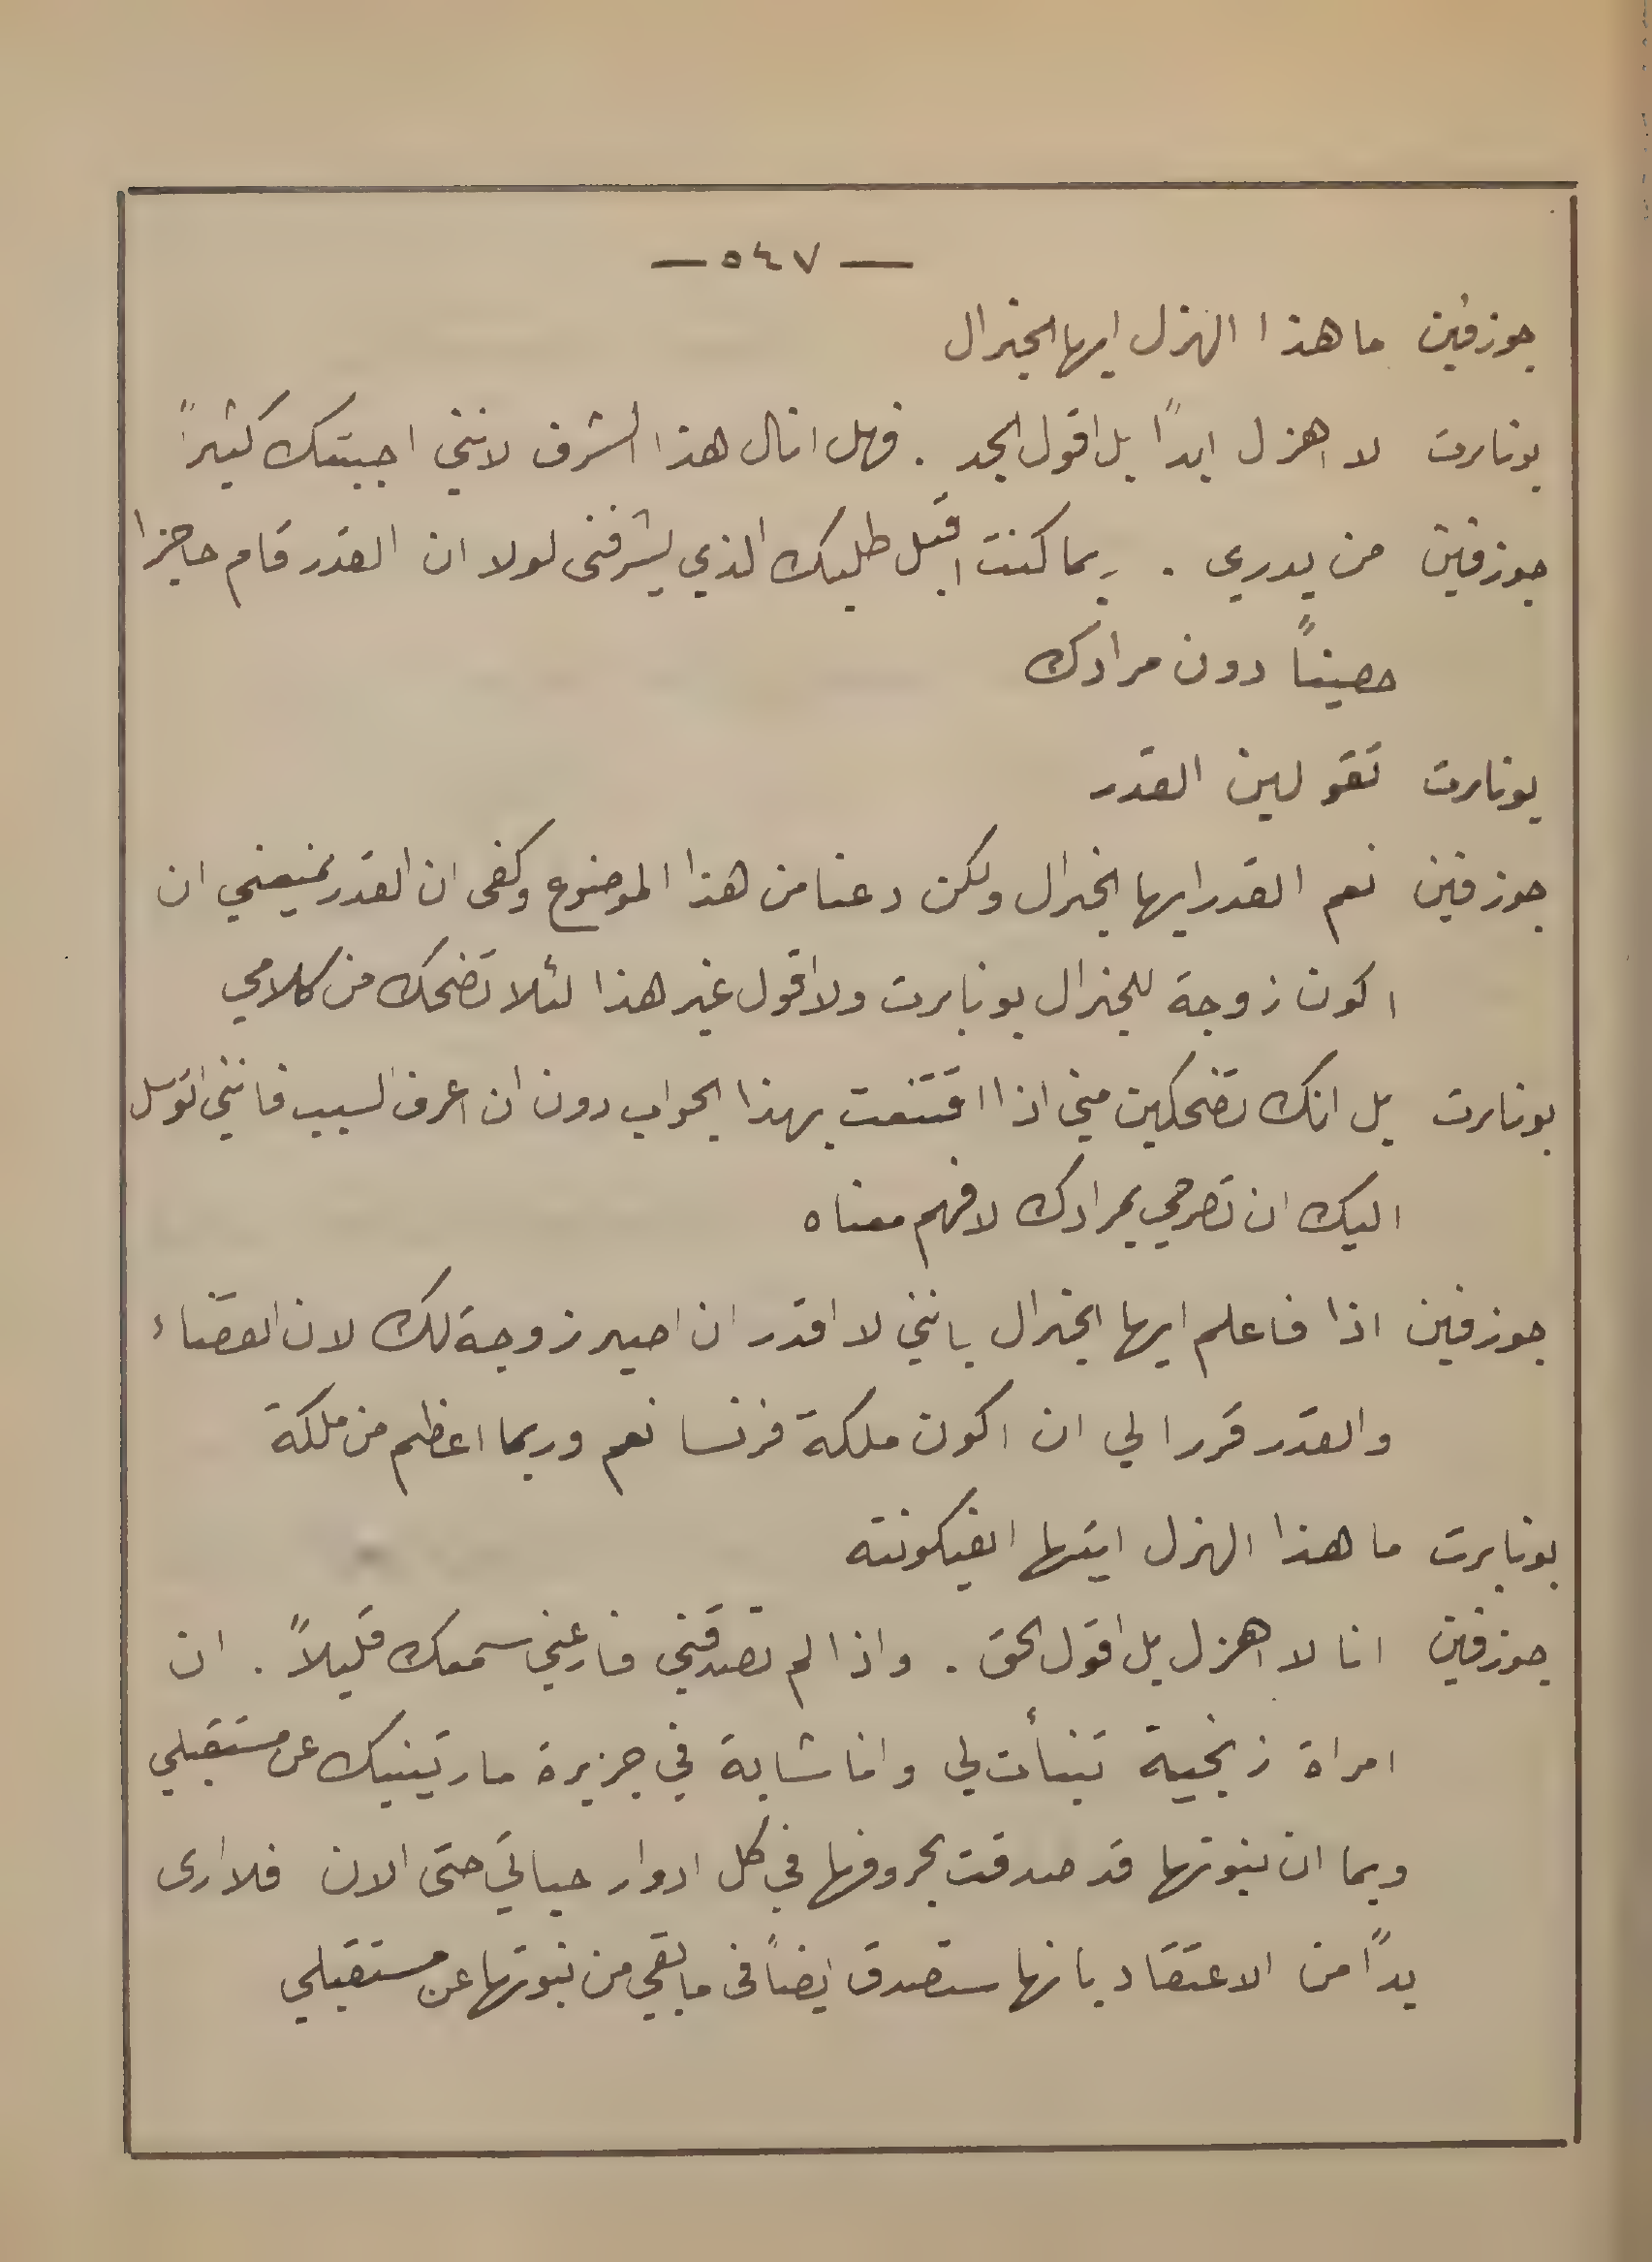 — ٥٤٧ —
جوزفين ما هذا الهزل ايها الجنرال
بونابرت لا اهزل ابداً بل اقول الجد . فهل انال هذا الشرف لانني احببتك كثيراً
جوزفين من يدري . ربما كنت اقبل طلبك الذي يشرفني لولا ان القدر قام حاجزا
حصيناً دون مرادك
بونابرت تقولين القدر
جوزفين نعم القدر ايها الجنرال ولكن دعنا من هذا الموضوع وكفى ان القدر يمنعني ان
اكون زوجة للجنرال بونابرت ولا اقول غير هذا لئلا تضحك من كلامي
بونابرت بل انك تضحكين مني اذا اقتنعت بهذا الجواب دون ان اعرف السبب فانني اتوسل
اليك ان تصرحي بمرادك لافهم معناه
جوزفين اذا فاعلم ايها الجنرال بانني لا اقدر ان اصير زوجة لك لان القضاء
والقدر قررا لي ان اكون ملكة فرنسا نعم وربما اعظم من ملكة
بونابرت ما هذا الهزل ايتها الفيكونته
جوزفين انا لا اهزل بل اقول الحق . واذا لم تصدقني فارعني سمعك قليلاً . ان
امراة زنجية تنبأت لي وانا شابة في جزيرة مارتينيك عن مستقبلي
وبما ان نبوتها قد صدقت بحروفها في كل ادوار حياتي حتى الان فلا ارى
بداً من الاعتقاد بانها ستصدق ايضاً في ما بقي من نبوتها عن مستقبلي